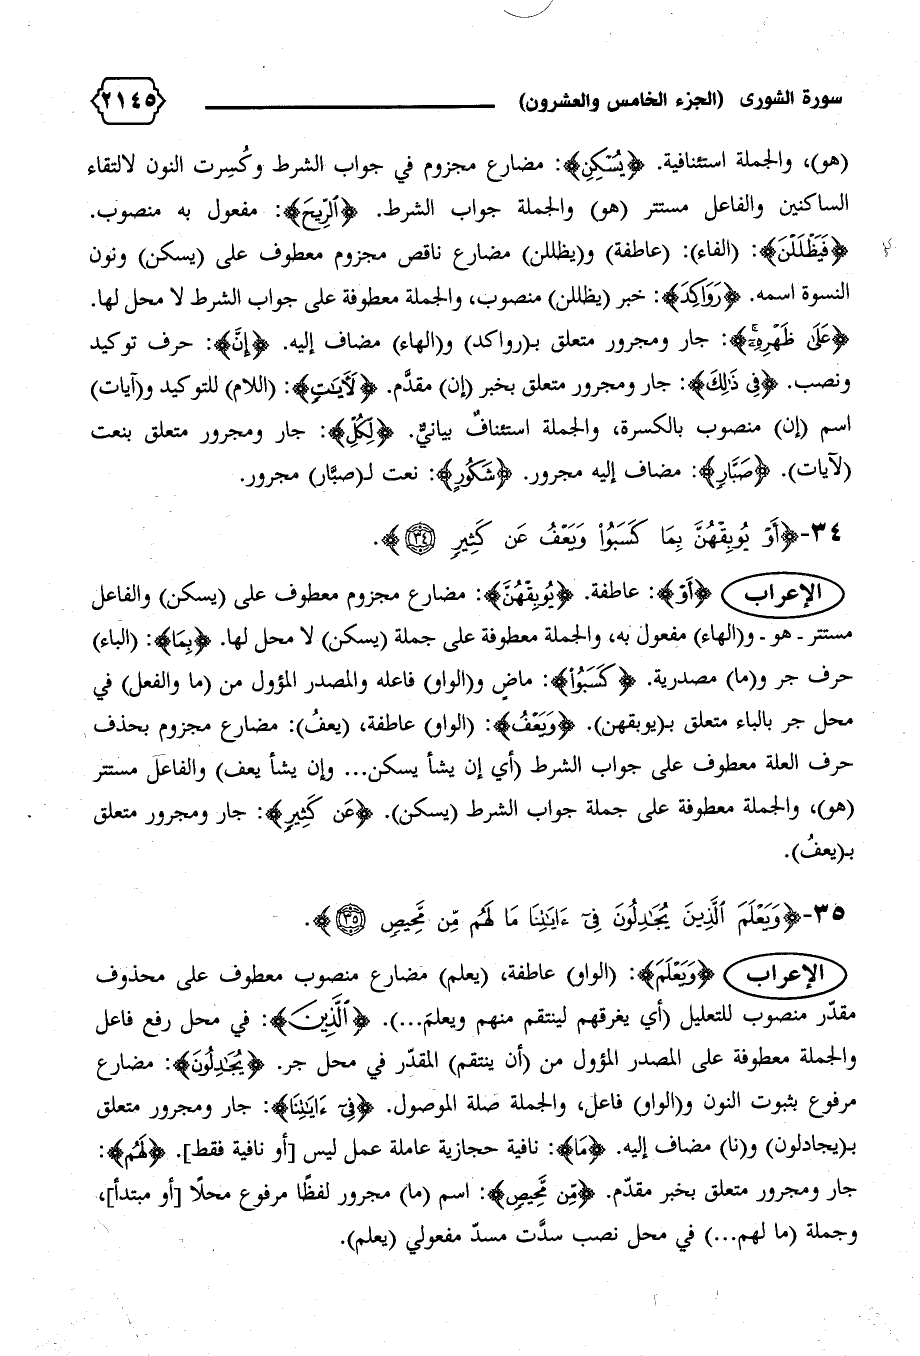 سورة الشورى (الجزء الخامس والعشرون) ٢١٤٥
(هو)، والجملة استئنافية. ﴿يُسْكِنِ﴾: مضارع مجزوم في جواب الشرط وكُسِرت النون لالتقاء
الساكنين والفاعل مستتر (هو) والجملة جواب الشرط. ﴿ٱلرِّيحَ﴾: مفعول به منصوب.
﴿فَيَظْلَلْنَ﴾: (الفاء): (عاطفة) و(يظللن) مضارع ناقص مجزوم معطوف على (يسكن) ونون
النسوة اسمه. ﴿رَوَاكِدَ﴾: خبر (يظللن) منصوب، والجملة معطوفة على جواب الشرط لا محل لها.
﴿عَلَىٰ ظَهْرِهِۦٓۚ﴾: جار ومجرور متعلق بـ(رواكد) و(الهاء) مضاف إليه. ﴿إِنَّ﴾: حرف توكيد
ونصب. ﴿فِى ذَٰلِكَ﴾: جار ومجرور متعلق بخبر (إن) مقدَّم. ﴿لَأَيَـٰتٍ﴾: (اللام) للتوكيد و(آيات)
اسم (إن) منصوب بالكسرة، والجملة استئنافٌ بيانيٌّ. ﴿لِكُلِّ﴾: جار ومجرور متعلق بنعت
(لآيات). ﴿صَبَّارٍ﴾: مضاف إليه مجرور. ﴿شَكُورٍ﴾: نعت لـ(صبَّار) مجرور.
٣٤-﴿أَوْ يُوبِقْهُنَّ بِمَا كَسَبُوا۟ وَيَعْفُ عَن كَثِيرٍ ٣٤﴾.
الإعراب ﴿أَوْ﴾: عاطفة. ﴿يُوبِقْهُنَّ﴾: مضارع مجزوم معطوف على (يسكن) والفاعل
مستتر ـ هو ـ و(الهاء) مفعول به، والجملة معطوفة على جملة (يسكن) لا محل لها. ﴿بِمَا﴾: (الباء)
حرف جر و(ما) مصدرية. ﴿كَسَبُوا۟﴾: ماضٍ و(الواو) فاعله والمصدر المؤول من (ما والفعل) في
محل جر بالباء متعلق بـ(يوبقهن). ﴿وَيَعْفُ﴾: (الواو) عاطفة، (يعفُ): مضارع مجزوم بحذف
حرف العلة معطوف على جواب الشرط (أي إن يشأ يسكن... وإن يشأ يعف) والفاعل مستتر
(هو)، والجملة معطوفة على جملة جواب الشرط (يسكن). ﴿عَن كَثِيرٍ﴾: جار ومجرور متعلق
بـ(يعفُ).
٣٥-﴿وَيَعْلَمَ ٱلَّذِينَ يُجَـٰدِلُونَ فِىٓ ءَايَـٰتِنَا مَا لَهُم مِّن مَّحِيصٍ ٣٥﴾.
الإعراب ﴿وَيَعْلَمَ﴾: (الواو) عاطفة، (يعلم) مضارع منصوب معطوف على محذوف
مقدّر منصوب للتعليل (أي يغرقهم لينتقم منهم ويعلمَ...). ﴿ٱلَّذِينَ﴾: في محل رفع فاعل
والجملة معطوفة على المصدر المؤول من (أن ينتقم) المقدّر في محل جر. ﴿يُجَـٰدِلُونَ﴾: مضارع
مرفوع بثبوت النون و(الواو) فاعل، والجملة صلة الموصول. ﴿فِىٓ ءَايَـٰتِنَا﴾: جار ومجرور متعلق
بـ(يجادلون) و(نا) مضاف إليه. ﴿مَا﴾: نافية حجازية عاملة عمل ليس [أو نافية فقط]. ﴿لَهُم﴾:
جار ومجرور متعلق بخبر مقدّم. ﴿مِّن مَّحِيصٍ﴾: اسم (ما) مجرور لفظًا مرفوع محلًا [أو مبتدأ]،
وجملة (ما لهم...) في محل نصب سدَّت مسدّ مفعولي (يعلم).